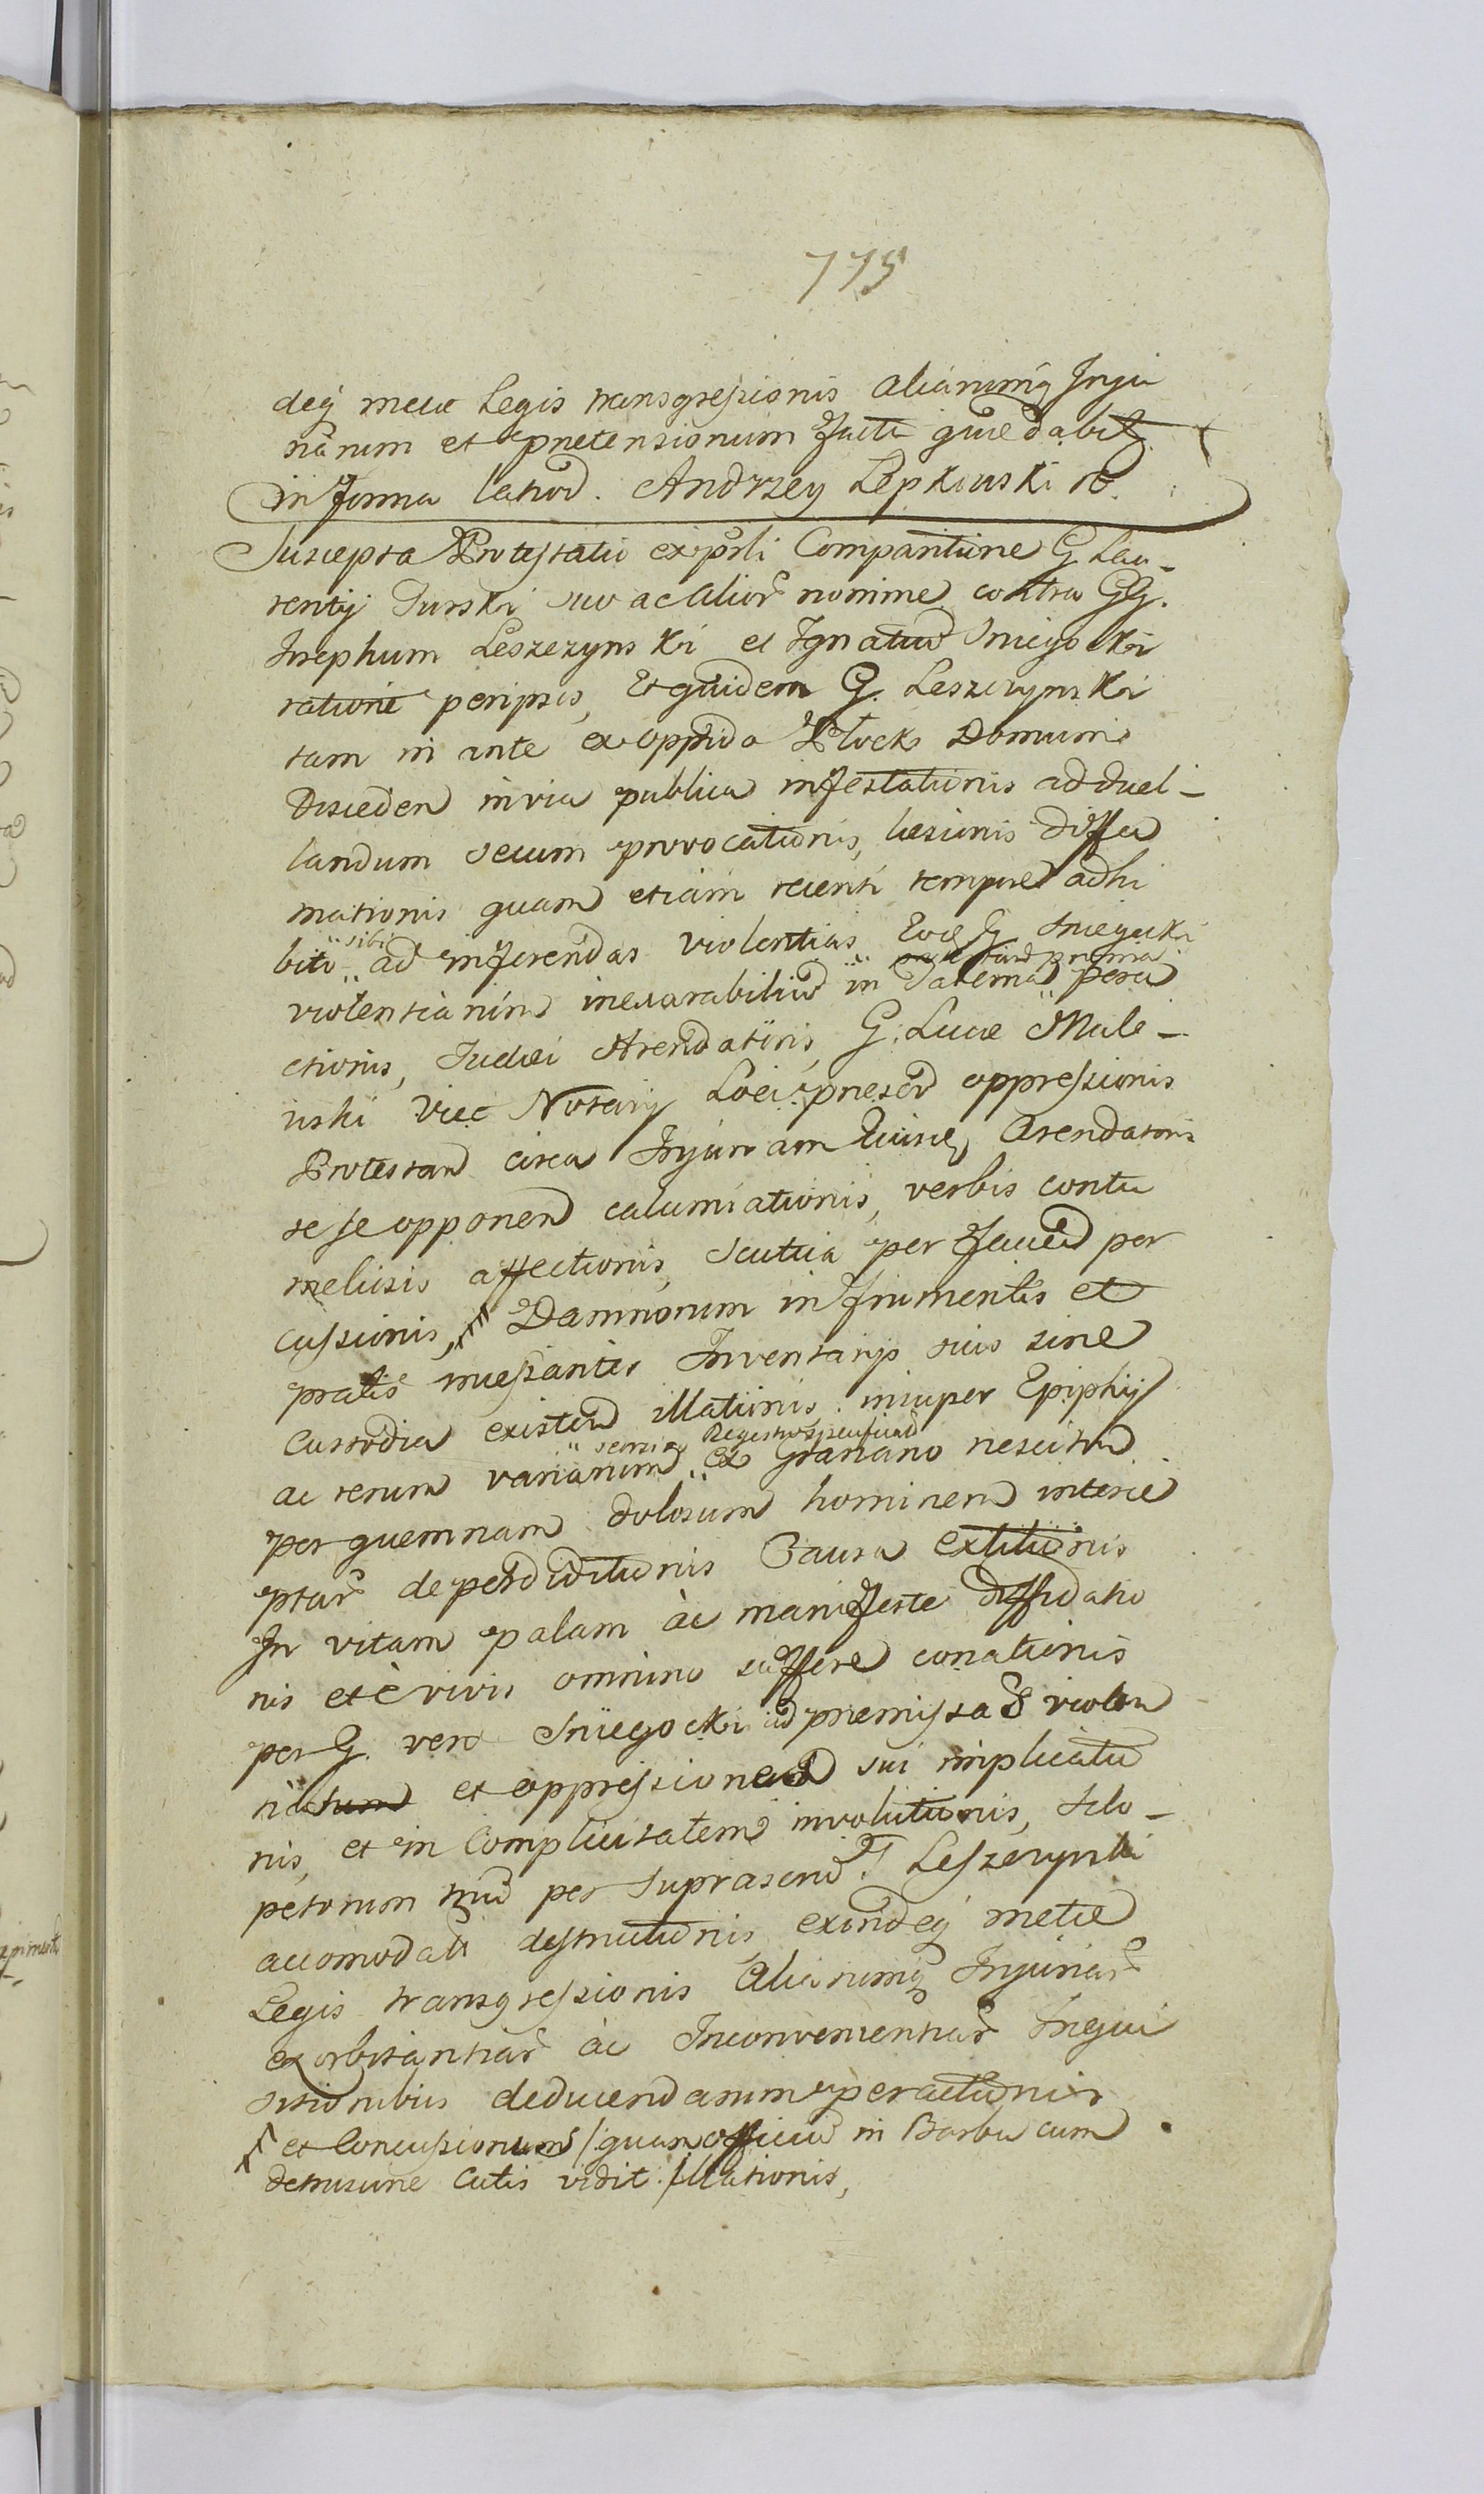 775
deq metae Legis transgressionis Aliarumq Inju
riarum et praetensionum facta quae dabit
in forma latiord. Andrzey Lępkowski
Suscepta Protestatio ex psli Comparitione G Lau-
rentij Turski suo ac Alior nomine contra GG.
Josephum Leszczynski et Ignatiu Sniegocki
ratione per ipsos, et quidem G. Leszczynski
tam in ante ex oppido Płock Domum
Disceden in via publica infestationis ad duel-
landum secum provocationis, laesionis diffa
mationis quam etiam recenti tempore adhi
biti ̎ sibi ̎ ad inferendas violentias G Sniegocki
violentiarum inexarabiliu in Taberna prima pera
ctionis, Judaei Arendatoris, G. Lucae Male-
uski Vice Notarij Loci praesen oppressionis
Protestan circa Injuriam ejusdē Arendatoris
sese opponen calumiationis, verbis contu
meliosis affectionis, Scutica per faciem per
cussionis, Damnorum in frumentis et
pratis incessanter Inventarijs suis sine
Custodia existen illationis, insuper Ephipij
ac rerum variarum ̎ Registro specificad ̎ ex Granario nescitur
per quemnam dolosum hominem interce
ptar deperditionis Causa extitionis
In vitam palam ac manifeste diffidatio
nis et è vivis omnino sufferre conationis
per G. vero Sniegocki ad praemissas violen
tias et oppressiones sui implicatio
nis, et in Complicitatem involutionis, Sclo-
petorum per suprascrip G Leszczynski
accomodati destructionis, exindeq metae
Legis transgressionis Aliarumq Injuriar
exorbitantiar ac Inconvenientiar Inqui
sitionibus deducendarum peractionis
et Concussionum / quam officium in Barba cum
detrusione Cutis vidit / Illationis,